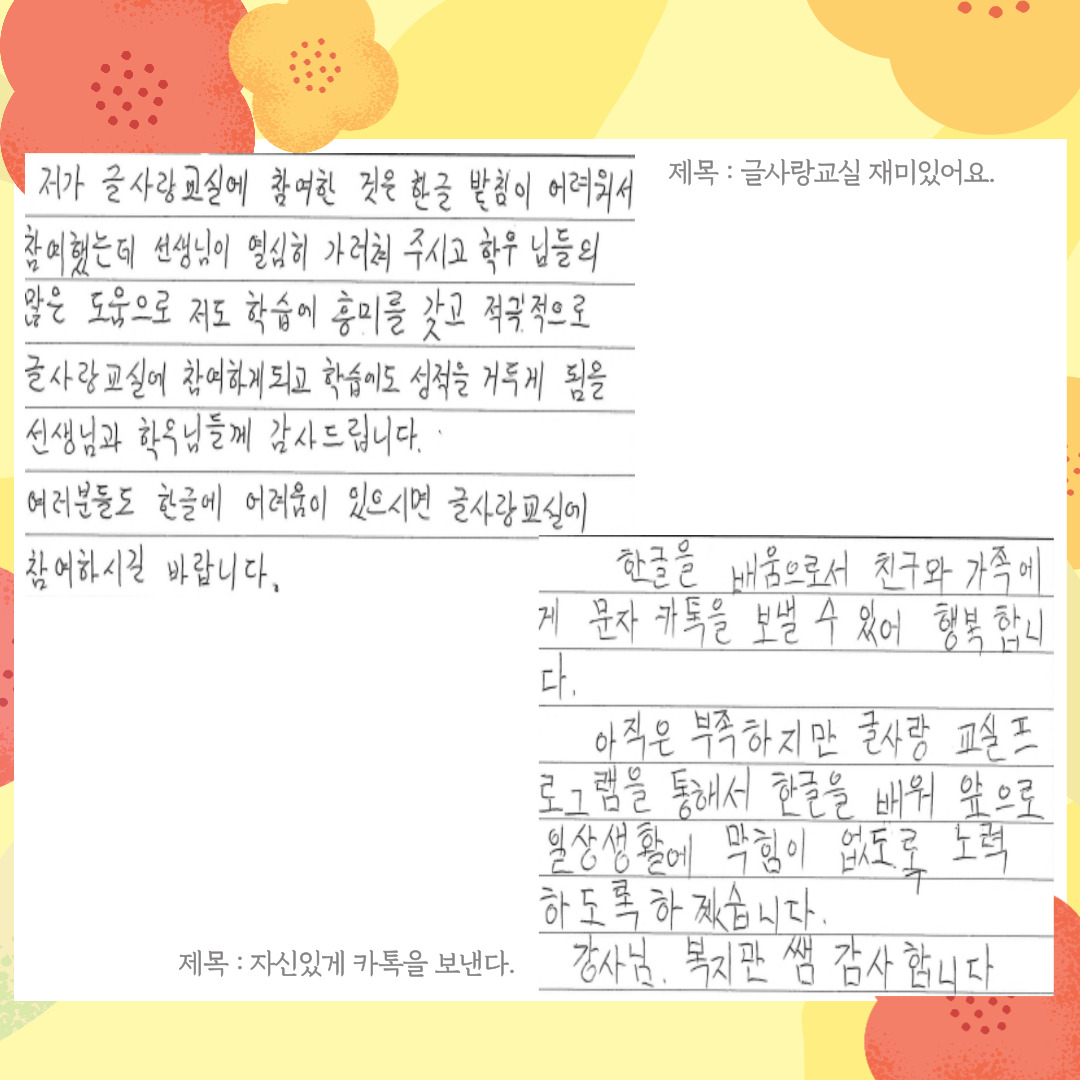 제목 : 글사랑교실 재미있어요.
저가 글사랑교실에 참여한 것은 한글 받침이 어려워서
참여했는데 선생님이 열심히 가러쳐 주시고 학우 님들의
많은 도움으로 저도 학습에 흥미를 갖고 적극적으로
글사랑교실에 참여하게되고 학습에도 성적을 거두게 됨을
선생님과 학우님들께 감사드립니다.
여러분들도 한글에 어려움이 있으시면 글사랑교실에
참여하시길 바랍니다.
제목 : 자신있게 카톡을 보낸다.
한글을 배움으로서 친구와 가족에
게 문자 카톡을 보낼 수 있어 행복 합니
다.
아직은 부족하지만 글사랑 교실 프
로그램을 통해서 한글을 배워 앞으로
일상생활에 막힘이 없도록 노력
하도록 하겠습니다.
강사님. 복지관 쌤 감사 합니다